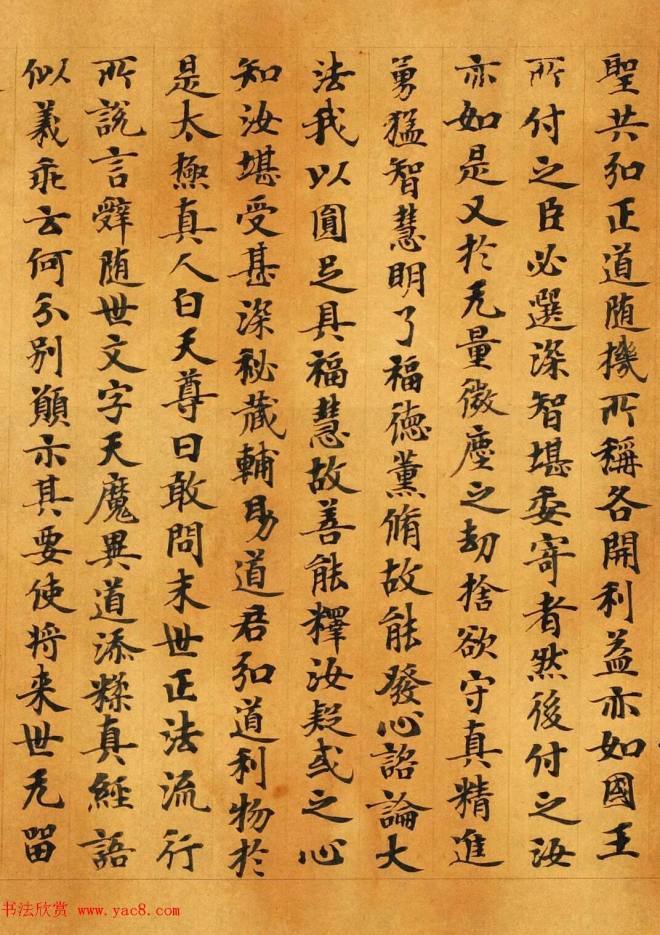 聖共弘正道随機所稱各開利益亦如國王
所付之臣必選深智堪委寄者然後付之汝
亦如是又於无量微塵之劫捨欲守真精進
勇猛智慧明了福德薰脩故能發心諮論大
法我以圓足具福慧故善能釋汝疑或之心
知汝堪受甚深秘蔵輔助道君弘道利物於
是太極真人白天尊曰敢問末世正法流行
所說言辭随世文字天魔異道添糅真經語
似義乖云何分別願示其要使将来世无留
书法欣赏 www.yac8.com